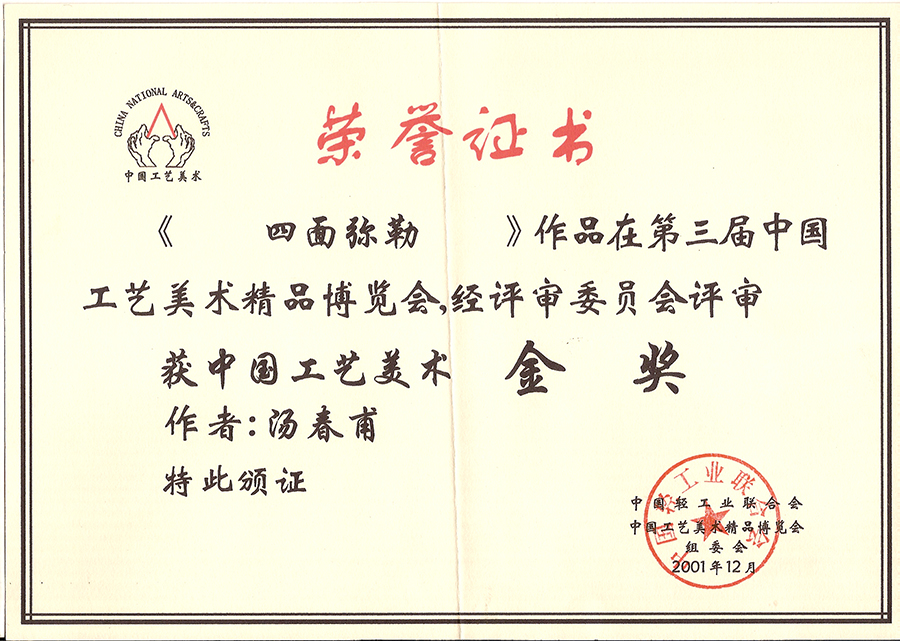 CHINA NATIONAL ARTS&CRAFTS
中国工艺美术
荣誉证书
《 四面弥勒 》作品在第三届中国
工艺美术精品博览会,经评审委员会评审
获中国工艺美术 金 奖
作者:汤春甫
特此颁证
中国轻工业联合会
中国轻工业联合会
中国工艺美术精品博览会
组委会
2001年12月